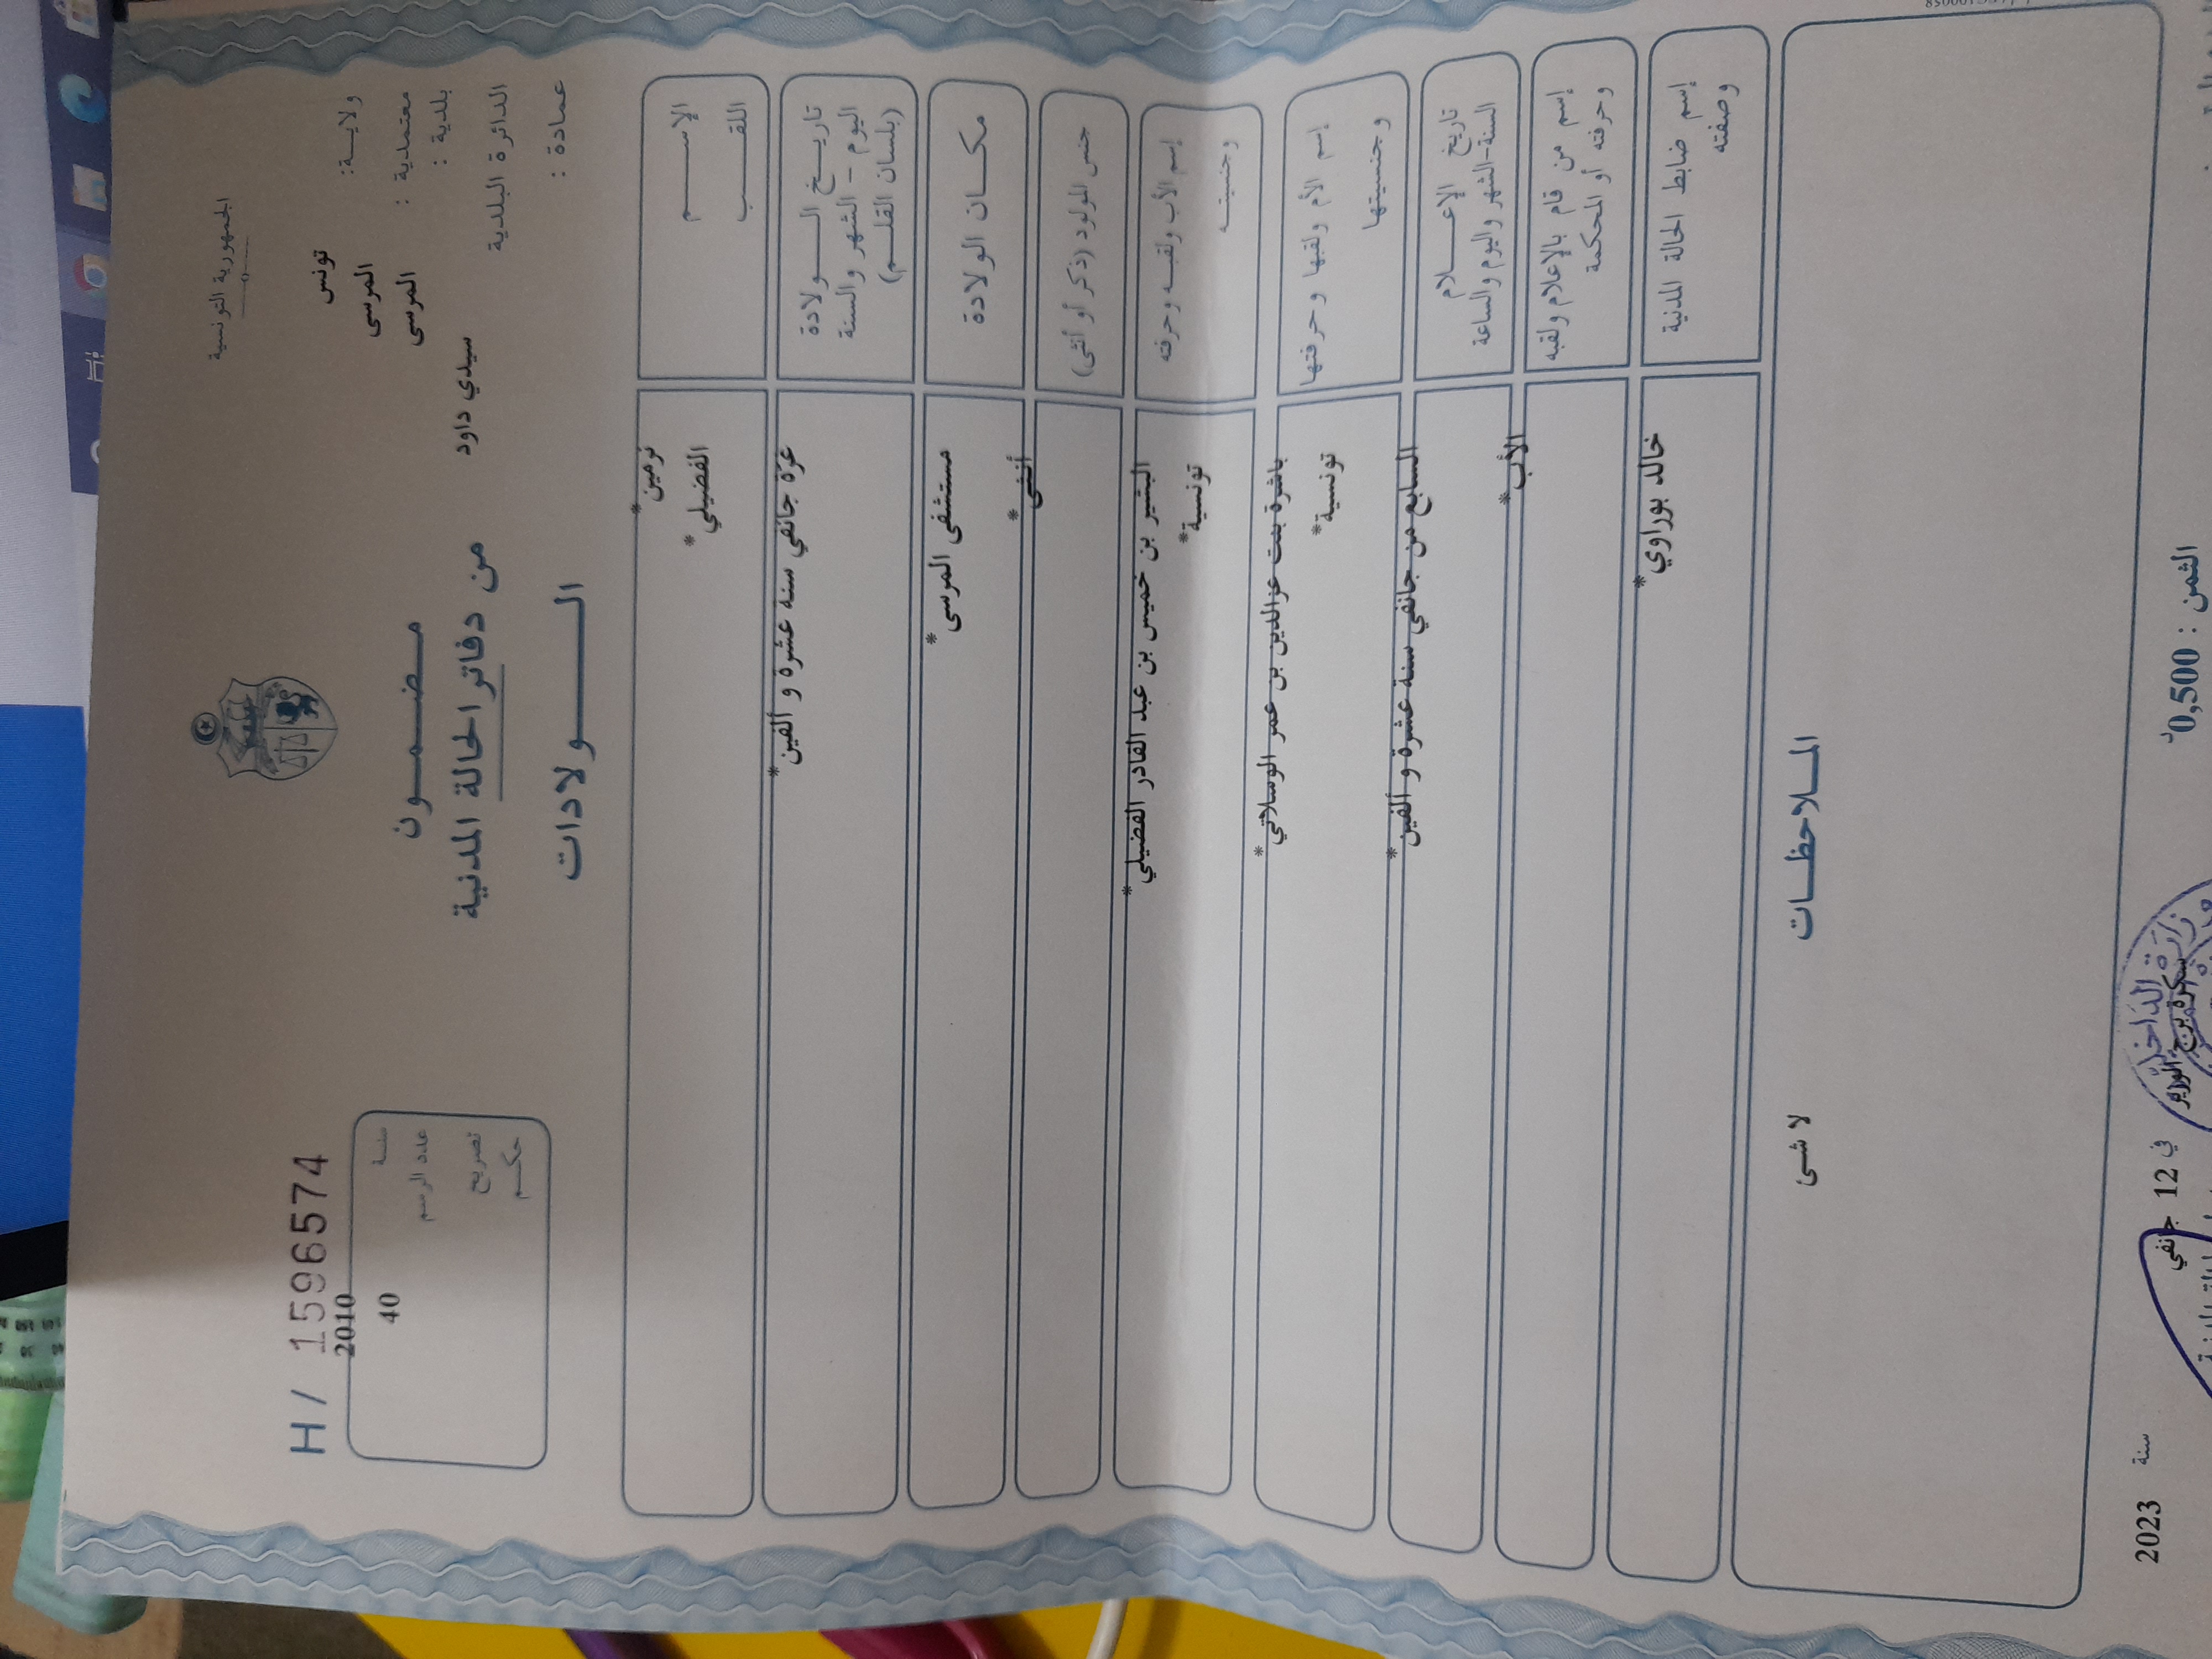 الجمهورية التونسية
H / 1596574
ولايـة: تونس
معتمدية : المرسى
بلدية : المرسى
الدائرة البلدية سيدي داود
عمادة :
سنة 2010
عدد الرسم 40
تصريح
حكـم
مـضـمـون
من دفاتر الحالة المدنية
الـولادات
الإسـم نرمين*
اللقـب الفضيلي*
تاريـخ الـولادة
اليوم - الشهر والسنة
(بلسان القلـم)
غرّة جانفي سنة عشرة و ألفين*
مكـان الولادة
مستشفى المرسى*
جنس المولود (ذكر أو أنثى)
أنثى*
إسم الأب ولقبـه وحرفته
وجنسيتـه
البشير بن خميس بن عبد القادر الفضيلي*
تونسية*
إسم الأم ولقبها وحرفتها
وجنسيتها
بنت عزالدين بن عمر الوسلاتي*
تونسية*
تاريخ الإعـلام
السنة-الشهر واليوم والساعة
السابع من جانفي سنة عشرة و ألفين*
إسم من قام بالإعلام ولقبه
وحرفته أو المحكمة
الأب*
إسم ضابط الحالة المدنية
وصفته
خالد بوراوي*
المـلاحظـات
لا شى
الثمن : 0,500د
وزارة الداخلية
سكرة برج الوزير في 12 جانفي سنة 2023